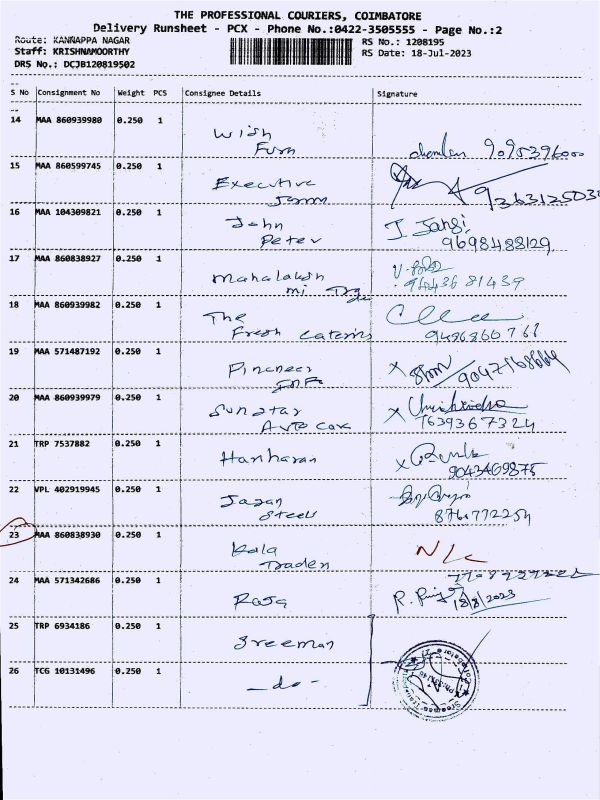 THE PROFESSIONAL COURIERS, COIMBATORE
Delivery Runsheet - PCX - Phone No.:0422-3505555 - Page No.:2
Route: KANNAPPA NAGAR
Staff: KRISHNAMOORTHY
DRS No.: DCJB120819502
RS No.: 1208195
RS Date: 18-Jul-2023
S No Consignment No Weight PCS Consignee Details Signature
14 MAA 860939980 0.250 1
Wish
Furn
9095396000
15 MAA 860599745 0.250 1
Executive
16 MAA 104309821 0.250 1
John
Peter
J Jansi
9698488129
17 MAA 860838927 0.250 1
Mahalaksh
mi
9643681439
18 MAA 860939982 0.250 1
The
Fresh Caterins
9486860761
19 MAA 571487192 0.250 1
Pincneer
20 MAA 860939979 0.250 1
Sunstar
Auto Care
7639367324
21 TRP 7537882 0.250 1
Hariharan
9043469875
22 VPL 402919945 0.250 1
Jagan
Steels
23 MAA 860838930 0.250 1
Kala
Traden
N/c
24 MAA 571342686 0.250 1
Raja
18/8/2023
25 TRP 6934186 0.250 1
Sreeman
26 TCG 10131496 0.250 1
-do-